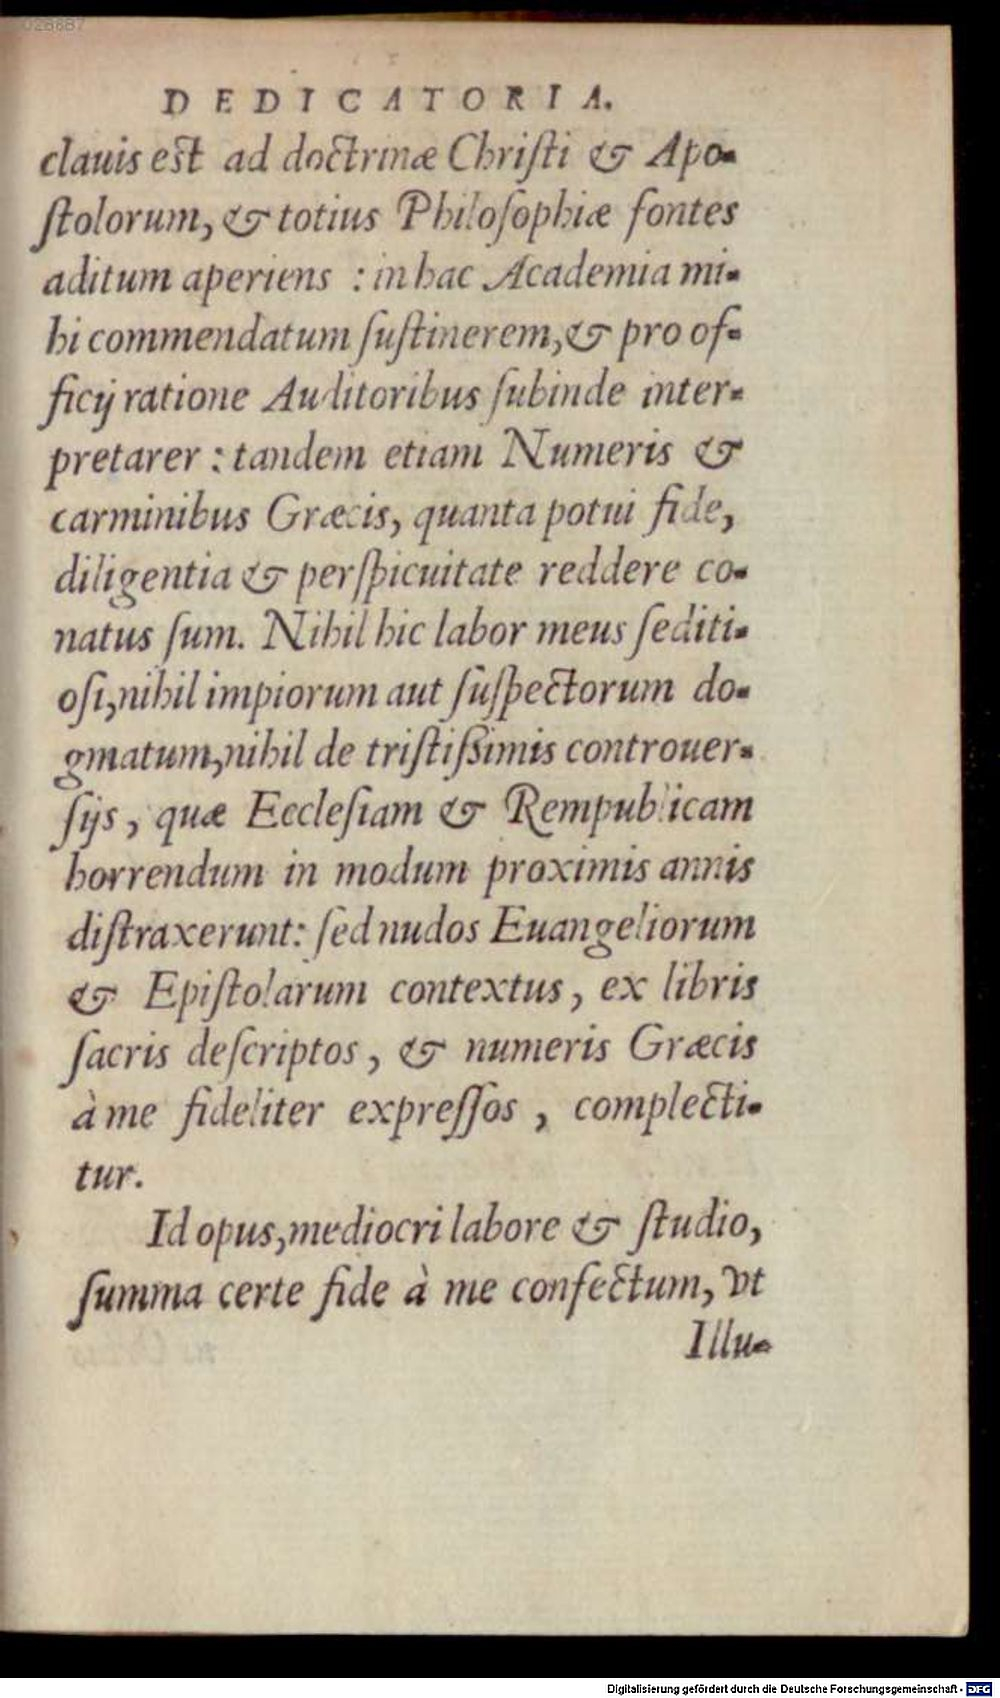 028887
DEDICATORIA.
clauis est ad doctrinæ Chriſti & Apo-
ſtolorum, & totius Philoſophiæ fontes
aditum aperiens : in hac Academia mi-
hi commendatum ſuſtinerem, & pro of-
ficij ratione Auditoribus ſubinde inter-
pretarer : tandem etiam Numeris &
carminibus Græcis, quanta potui fide,
diligentia & perſpicuitate reddere co-
natus ſum. Nihil hic labor meus ſediti-
oſi, nihil impiorum aut ſuſpectorum do-
gmatum, nihil de triſtißimis controuer-
ſijs, quæ Eccleſiam & Rempublicam
horrendum in modum proximis annis
diſtraxerunt: ſed nudos Euangeliorum
& Epiſtolarum contextus, ex libris
ſacris deſcriptos, & numeris Græcis
à me fideliter expreſſos, complecti-
tur.
Id opus, mediocri labore & ſtudio,
ſumma certe fide à me confectum, vt
Illu-
Digitalisierung gefördert durch die Deutsche Forschungsgemeinschaft - DFG